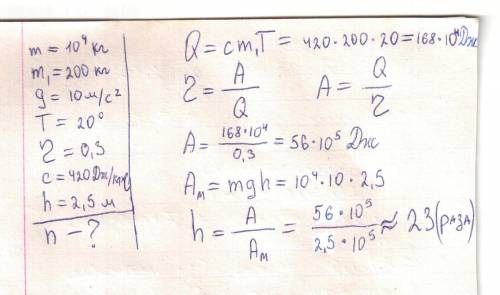 m = 10⁴ кг
m₁ = 200 кг
g = 10 м/с²
T = 20°
η = 0,3
c = 420 Дж/кг°С
h = 2,5 м
n – ?
Q = cm₁T = 420·200·20 = 168·10⁴ Дж
η = A/Q A = Q/η
A = 168·10⁴/0,3 = 56·10⁵ Дж
Aм = mgh = 10⁴·10·2,5
h = A/Aм = 56·10⁵/2,5·10⁵ ≈ 23 (раза)